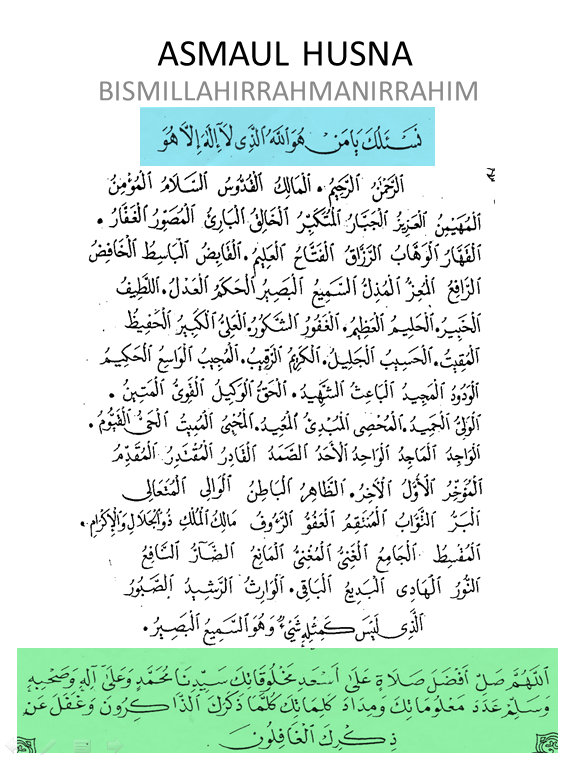 ASMAUL HUSNA
BISMILLAHIRRAHMANIRRAHIM
نَسْئَلُكَ يَا مَنْ هُوَ اللّٰهُ الَّذِى لَا إِلٰهَ إِلَّا هُوَ
الرَّحْمٰنُ الرَّحِيْمُ. الْمَالِكُ الْقُدُّوْسُ السَّلَامُ الْمُؤْمِنُ
الْمُهَيْمِنُ الْعَزِيْزُ الْجَبَّارُ الْمُتَكَبِّرُ الْخَالِقُ الْبَارِئُ الْمُصَوِّرُ الْغَفَّارُ.
الْقَهَّارُ الْوَهَّابُ الرَّزَّاقُ الْفَتَّاحُ الْعَلِيْمُ. الْقَابِضُ الْبَاسِطُ الْخَافِضُ
الرَّافِعُ الْمُعِزُّ الْمُذِلُّ السَّمِيْعُ الْبَصِيْرُ الْحَكَمُ الْعَدْلُ. اللَّطِيْفُ
الْخَبِيْرُ. الْحَلِيْمُ الْعَظِيْمُ. الْغَفُوْرُ الشَّكُوْرُ. الْعَلِىُّ الْكَبِيْرُ الْحَفِيْظُ
الْمُقِيْتُ. الْحَسِيْبُ الْجَلِيْلُ. الْكَرِيْمُ الرَّقِيْبُ. الْمُجِيْبُ الْوَاسِعُ الْحَكِيْمُ
الْوَدُوْدُ الْمَجِيْدُ الْبَاعِثُ الشَّهِيْدُ. الْحَقُّ الْوَكِيْلُ الْقَوِىُّ الْمَتِيْنُ.
الْوَلِىُّ الْحَمِيْدُ. الْمُحْصِى الْمُبْدِئُ الْمُعِيْدُ. الْمُحْيِى الْمُمِيْتُ الْحَىُّ الْقَيُّوْمُ.
الْوَاجِدُ الْمَاجِدُ الْوَاحِدُ الْأَحَدُ الصَّمَدُ الْقَادِرُ الْمُقْتَدِرُ الْمُقَدِّمُ
الْمُؤَخِّرُ الْأَوَّلُ الْآخِرُ. الظَّاهِرُ الْبَاطِنُ الْوَالِى الْمُتَعَالِى
الْبَرُّ التَّوَّابُ الْمُنْتَقِمُ الْعَفُوُّ الرَّءُوْفُ مَالِكُ الْمُلْكِ ذُو الْجَلَالِ وَالْإِكْرَامِ.
الْمُقْسِطُ الْجَامِعُ الْغَنِىُّ الْمُغْنِىُّ الْمَانِعُ الضَّآرُّ النَّافِعُ
النُّوْرُ الْهَادِى الْبَدِيْعُ الْبَاقِى. الْوَارِثُ الرَّشِيْدُ الصَّبُوْرُ
الَّذِى لَيْسَ كَمِثْلِهِ شَىْءٌ وَهُوَ السَّمِيْعُ الْبَصِيْرُ.
اَللّٰهُمَّ صَلِّ أَفْضَلَ صَلَاةٍ عَلَى أَسْعَدِ مَخْلُوْقَاتِكَ سَيِّدِنَا مُحَمَّدٍ وَعَلَى آلِهِ وَصَحْبِهِ
وَسَلِّمْ عَدَدَ مَعْلُوْمَاتِكَ وَمِدَادَ كَلِمَاتِكَ كُلَّمَا ذَكَرَكَ الذَّاكِرُوْنَ وَغَفَلَ عَنْ
ذِكْرِكَ الْغَافِلُوْنَ